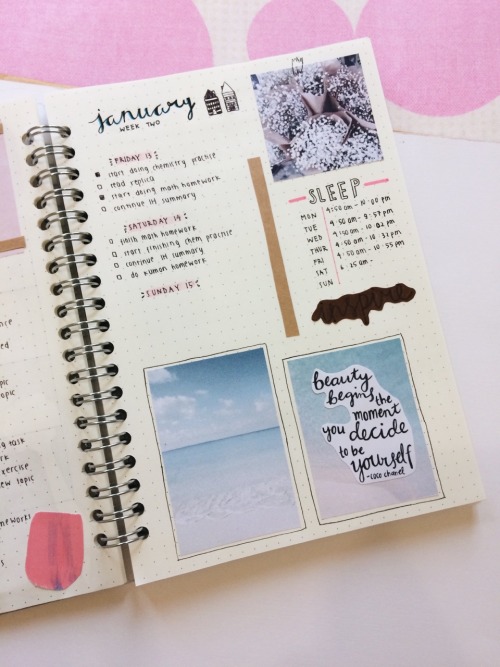 january
WEEK TWO
FRIDAY 13
start doing chemistry practice
read replica
start doing math homework
continue IH summary
SATURDAY 14
finish math homework
start finishing chem practice
continue IH summary
do kumon homework
SUNDAY 15
SLEEP
MON 4:50 am - 10:00 pm
TUE 4:50 am - 9:57 pm
WED 4:50 am - 10:02 pm
THUR 4:50 am - 10:31 pm
FRI 4:50 am - 10:55 pm
SAT 6:25 am -
SUN
beauty
begins the
moment
you decide
to be
yourself
- coco chanel
pic
topic
task
exercise
new topic